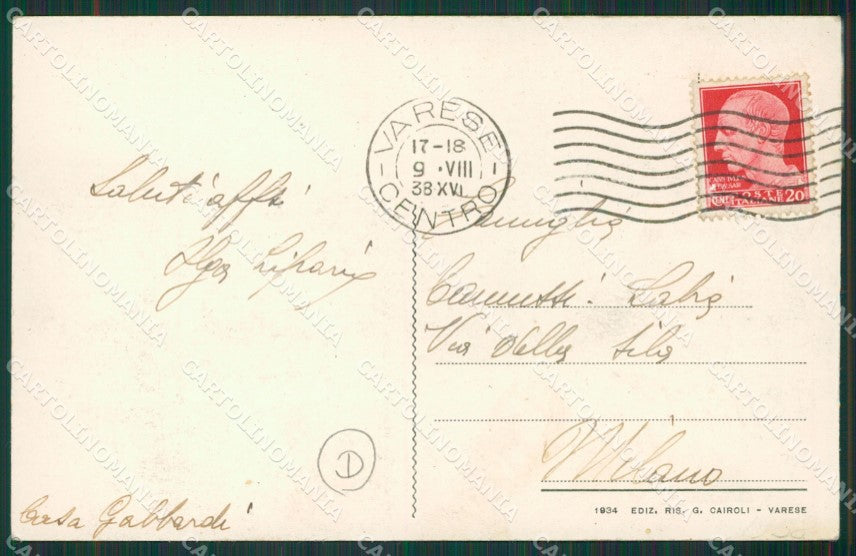 VARESE
17-18
9 • VIII
38 XVI
CENTRO
POSTE
ITALIANE
CENT 20
Saluti affi
Olga
Famiglia
Via della Sila
Milano
D
Casa Gabbardi
1934 EDIZ. RIS. G. CAIROLI - VARESE
CARTOLINOMANIA